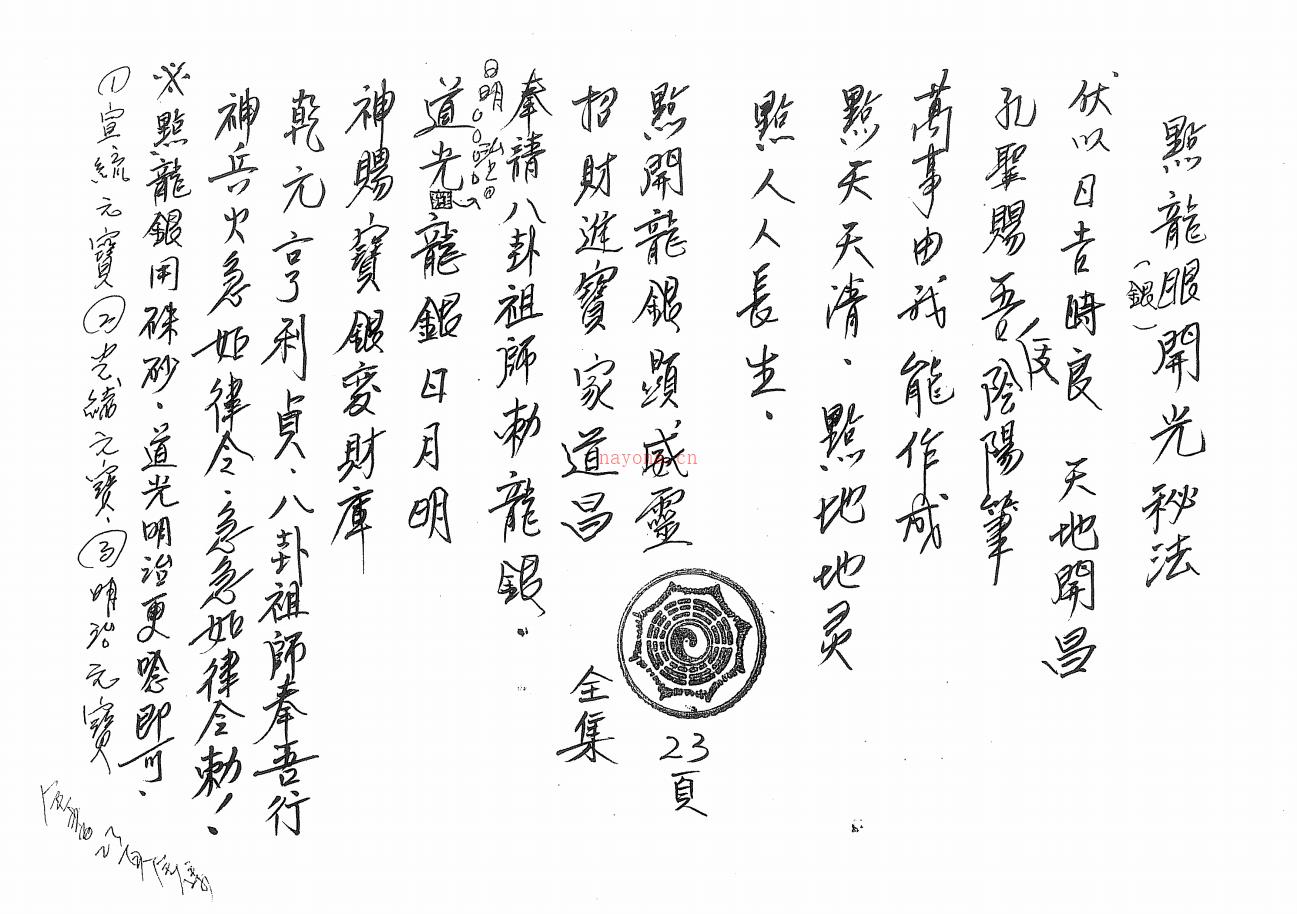 點龍眼開光秘法
(銀)
伏以日吉時良 天地開昌
孔聖賜吾陰陽筆
支
萬事由我能作成
點天天清、點地地灵
點人人長生、
點開龍銀顯威靈
招財進寶家道昌
奉請八卦祖師勅龍銀、
日明
道光龍銀日月明
神賜寶銀變財庫
乾元亨利貞、八卦祖師奉吾行
神兵火急如律令、急急如律令勅!
※點龍銀用硃砂、道光明治更唸即可、
①宣統元寶②光緒元寶、③明治元寶
23頁
全集
nayona.cn